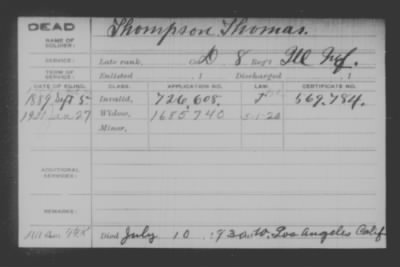 DEAD
NAME OF SOLDIER: Thompson Thomas.
SERVICE: Late rank, Co. D 8 Reg't Ill Inf.
TERM OF SERVICE: Enlisted , 1 Discharged , 1
DATE OF FILING. CLASS. APPLICATION NO. LAW. CERTIFICATE NO.
1889 Sept 5 Invalid, 726,608. 569.784.
27 Widow, 1685 740
Minor,
ADDITIONAL SERVICES:
REMARKS:
Died July 10 , at Los Angeles Calif